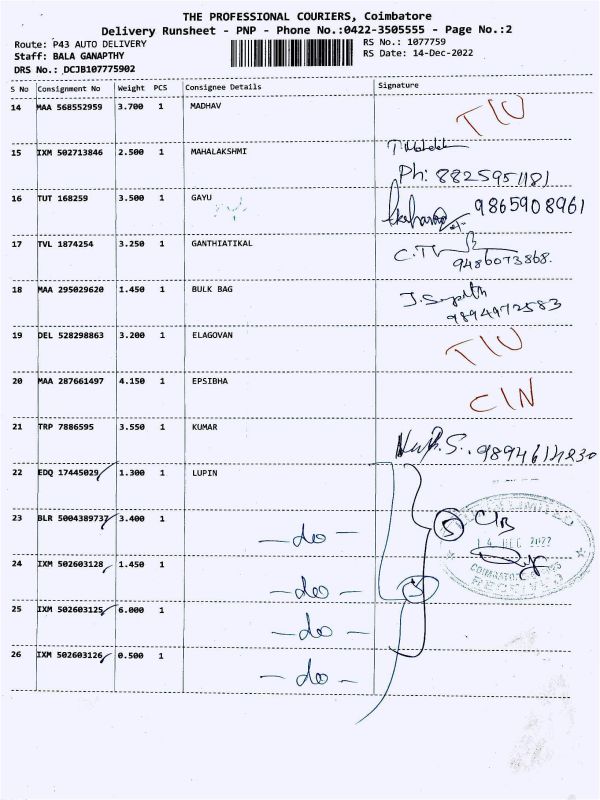 THE PROFESSIONAL COURIERS, Coimbatore
Delivery Runsheet - PNP - Phone No.:0422-3505555 - Page No.:2
Route: P43 AUTO DELIVERY
RS No.: 1077759
Staff: BALA GANAPTHY
RS Date: 14-Dec-2022
DRS No.: DCJB107775902
S No Consignment No Weight PCS Consignee Details Signature
14 MAA 568552959 3.700 1 MADHAV TIU
15 IXM 502713846 2.500 1 MAHALAKSHMI
Ph: 8825951181
16 TUT 168259 3.500 1 GAYU 9865908961
17 TVL 1874254 3.250 1 GANTHIATIKAL
9486073868.
18 MAA 295029620 1.450 1 BULK BAG
9894972583
19 DEL 528298863 3.200 1 ELAGOVAN TIU
20 MAA 287661497 4.150 1 EPSIBHA CIN
21 TRP 7886595 3.550 1 KUMAR
22 EDQ 17445029 1.300 1 LUPIN
23 BLR 5004389737 3.400 1 5 C/B
- do -
14 DEC 2022
24 IXM 502603128 1.450 1
- do -
25 IXM 502603125 6.000 1
- do -
26 IXM 502603126 0.500 1
- do -